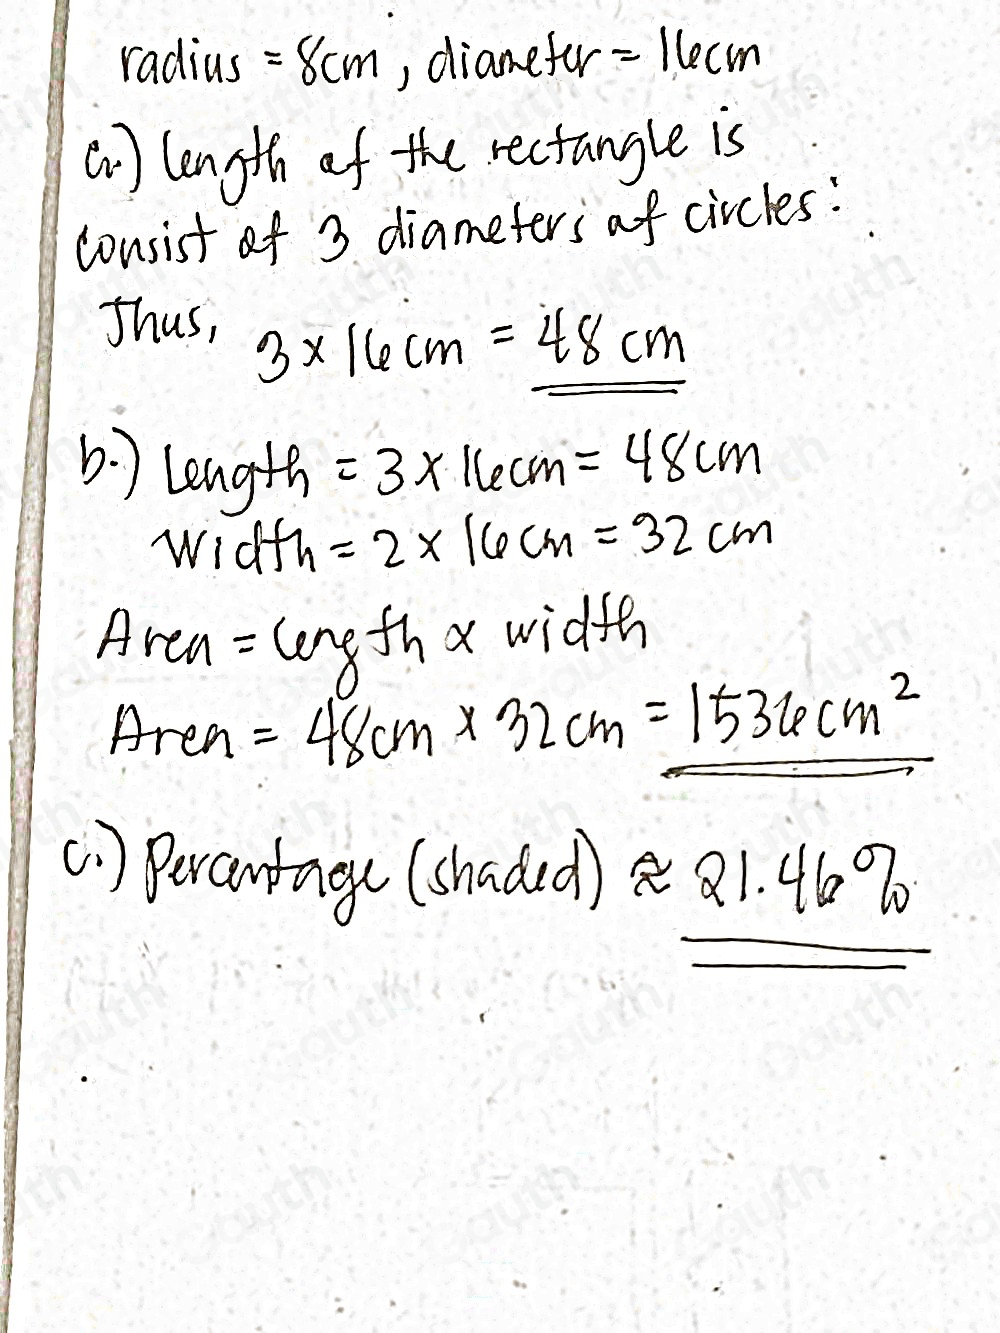 radius = 8cm, diameter = 16cm
a.) length of the rectangle is
consist of 3 diameters of circles:
Thus,
3 x 16cm = 48 cm
b.) Length = 3 x 16cm = 48cm
Width = 2 x 16cm = 32 cm
Area = length x width
Area = 48cm x 32cm = 1536cm²
c.) Percentage (shaded) ≈ 21.46%